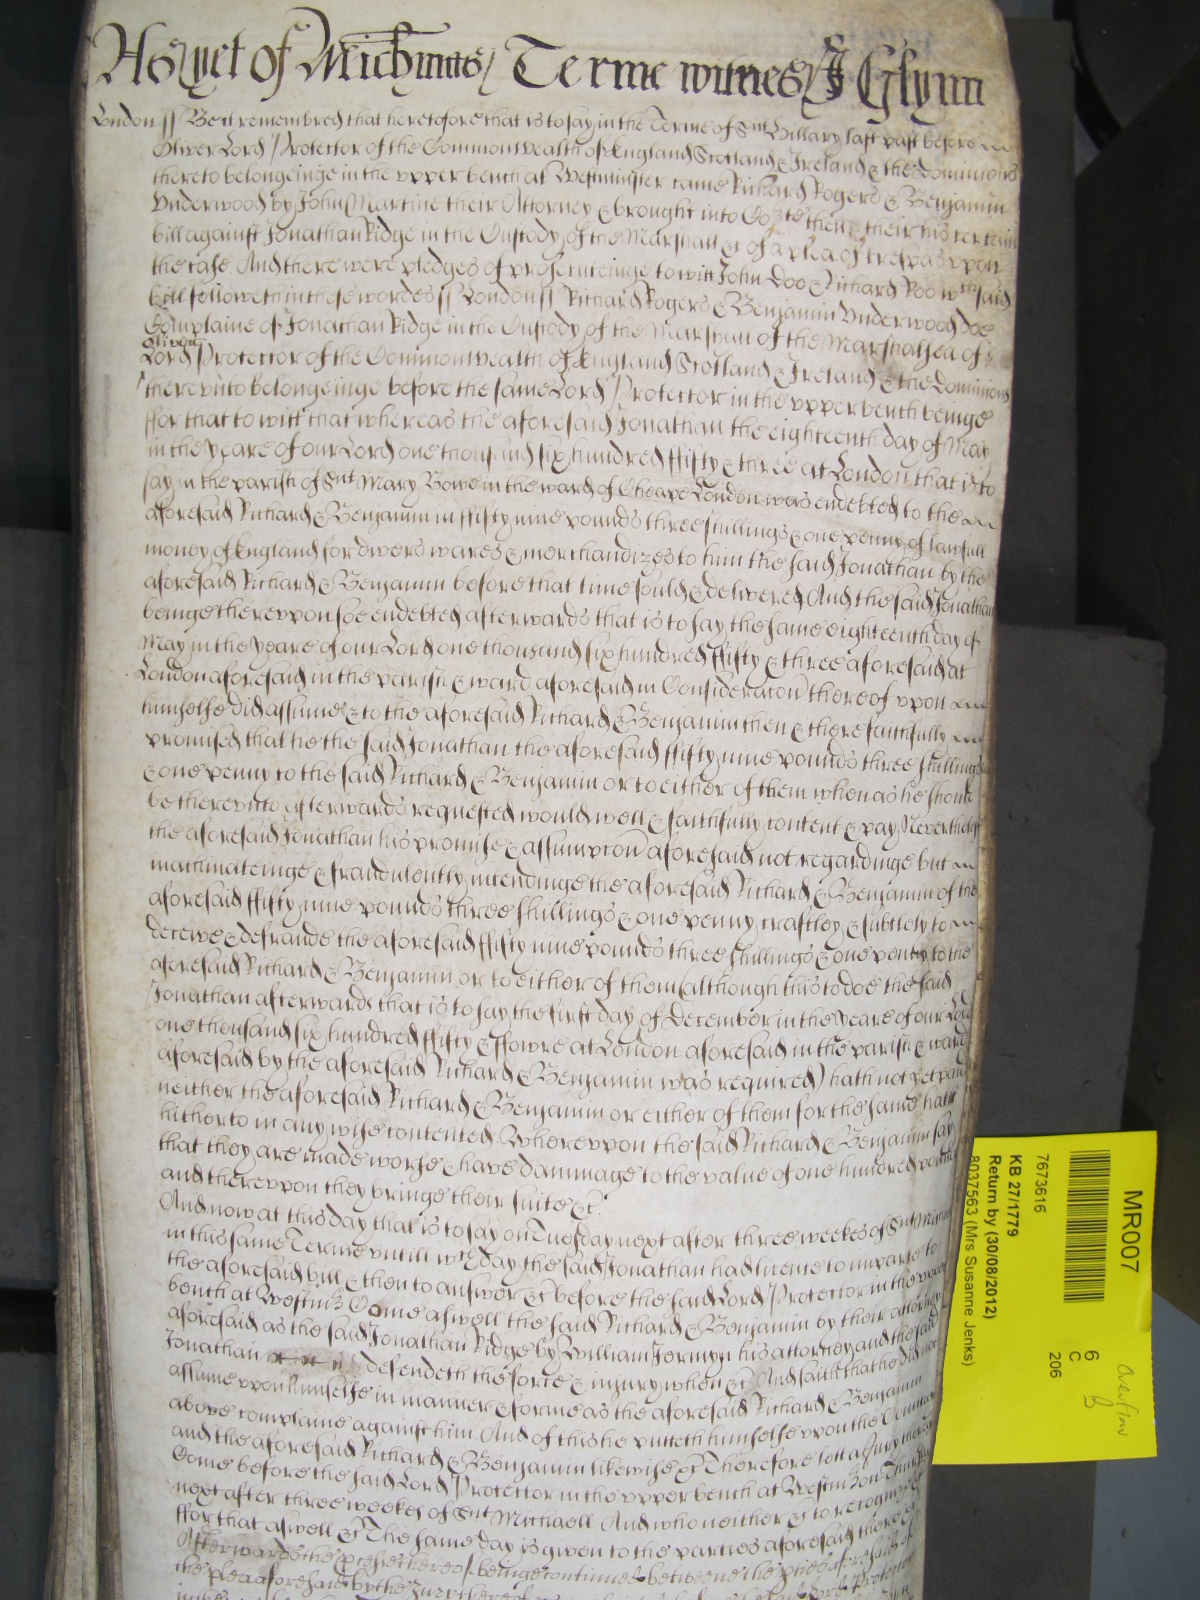 As yet of Michmas Terme witnes J Glynn
London ss Be it remembred that heretofore that is to say in the Terme of Snt Hillary last past before
Oliver Lord Protector of the Commonwealth of England Scotland & Ireland & the dominions
thereto belongeinge in the upper bench at Westminster came Richard Rogers & Benjamin
Underwood by John Martine their Attorney & brought into Co͠rte then & there his certein
bill against Jonathan Ridge in the Custody of the Marshall &c of a plea of trespas upon
the case And there were pledges of prosecuteinge to witt John Doo & Richard Roo wch said
bill followeth in these wordes ss London ss Richard Rogers & Benjamin Underwood doe
Complaine of Jonathan Ridge in the Custody of the Marshall of the Marshalsea of
Oliver
Lord Protector of the Commonwealth of England Scotland & Ireland & the Dominions
thereunto belongeinge before the same Lord Protector in the upper bench beinge
ffor that to witt that whereas the aforesaid Jonathan the eighteenth day of May
in the yeare of our Lord one thousand six hundred ffifty & three at London that is to
say in the parish of Snt Mary Bowe in the ward of Cheape London was endebted to the
aforesaid Richard & Benjamin in ffifty nine pounds three shillings & one penny of lawfull
money of England for divers wares & merchandizes to him the said Jonathan by the
aforesaid Richard & Benjamin before that time sould & delivered And the said Jonathan
beinge thereuppon soe endebted afterwards that is to say the same eighteenth day of
May in the yeare of our Lord one thousand six hundred ffifty & three aforesaid at
London aforesaid in the parish & ward aforesaid in Consideracon thereof upon
himselfe did assume & to the aforesaid Richard & Benjamin then & there faithfully
promised that he the said Jonathan the aforesaid ffifty nine pounds three shillings
& one penny to the said Richard & Benjamin or to either of them when as he should
be thereunto afterwards requested would well & faithfully content & pay Neverthelesse
the aforesaid Jonathan his promise & assumpcon aforesaid not regardinge but
machinateinge & fraudulently intendinge the aforesaid Richard & Benjamin of the
aforesaid ffifty nine pounds three shillings & one penny craftley & subtlely to
deceive & defraude the aforesaid ffifty nine pounds three shillings & one penny to the
aforesaid Richard & Benjamin or to either of them (although this to doe the said
Jonathan afterwards that is to say the first day of December in the yeare of our Lord
one thousand six hundred ffifty & ffowre at London aforesaid in the parish & ward
aforesaid by the aforesaid Richard & Benjamin was required) hath not yet paid
neither the aforesaid Richard & Benjamin or either of them for the same hath
hitherto in any wise contented Whereupon the said Richard & Benjamin say
that they are made worse & have dammage to the value of one hundred pounds
and thereupon they bringe their suite &c
And now at this day that is to say on Tuesday next after three weekes of Snt Michaell
in this same Terme untill wch day the said Jonathan had licence to imparle to
the aforesaid bill & then to answer &c before the said Lord Protector in the upper
bench at Westm̃ Come aswell the said Richard & Benjamin by their attorney
aforesaid as the said Jonathan Ridge by William Jermyn his attorney and the said
Jonathan defendeth the force & injury when &c And saith that he did not
assume upon himselfe in manner & forme as the aforesaid Richard & Benjamin
above complaine against him And of this he putteth himselfe upon the Country
and the aforesaid Richard & Benjamin likewise &c Therefore lett a Jury thereof
Come before the said Lord Protector in the upper bench at Westm̃ on
next after three weekes of Snt Michaell And who neither &c to recognize
ffor that aswell &c The same day is given to the parties aforesaid there &c
Afterwards the processe thereof beinge continued betweene the pties aforesaid of
the plea aforesaid by the Jury
MR007
6
C
206
7673616
KB 27/1779
Return by (30/08/2012)
8037563 (Mrs Susanne Jenks)